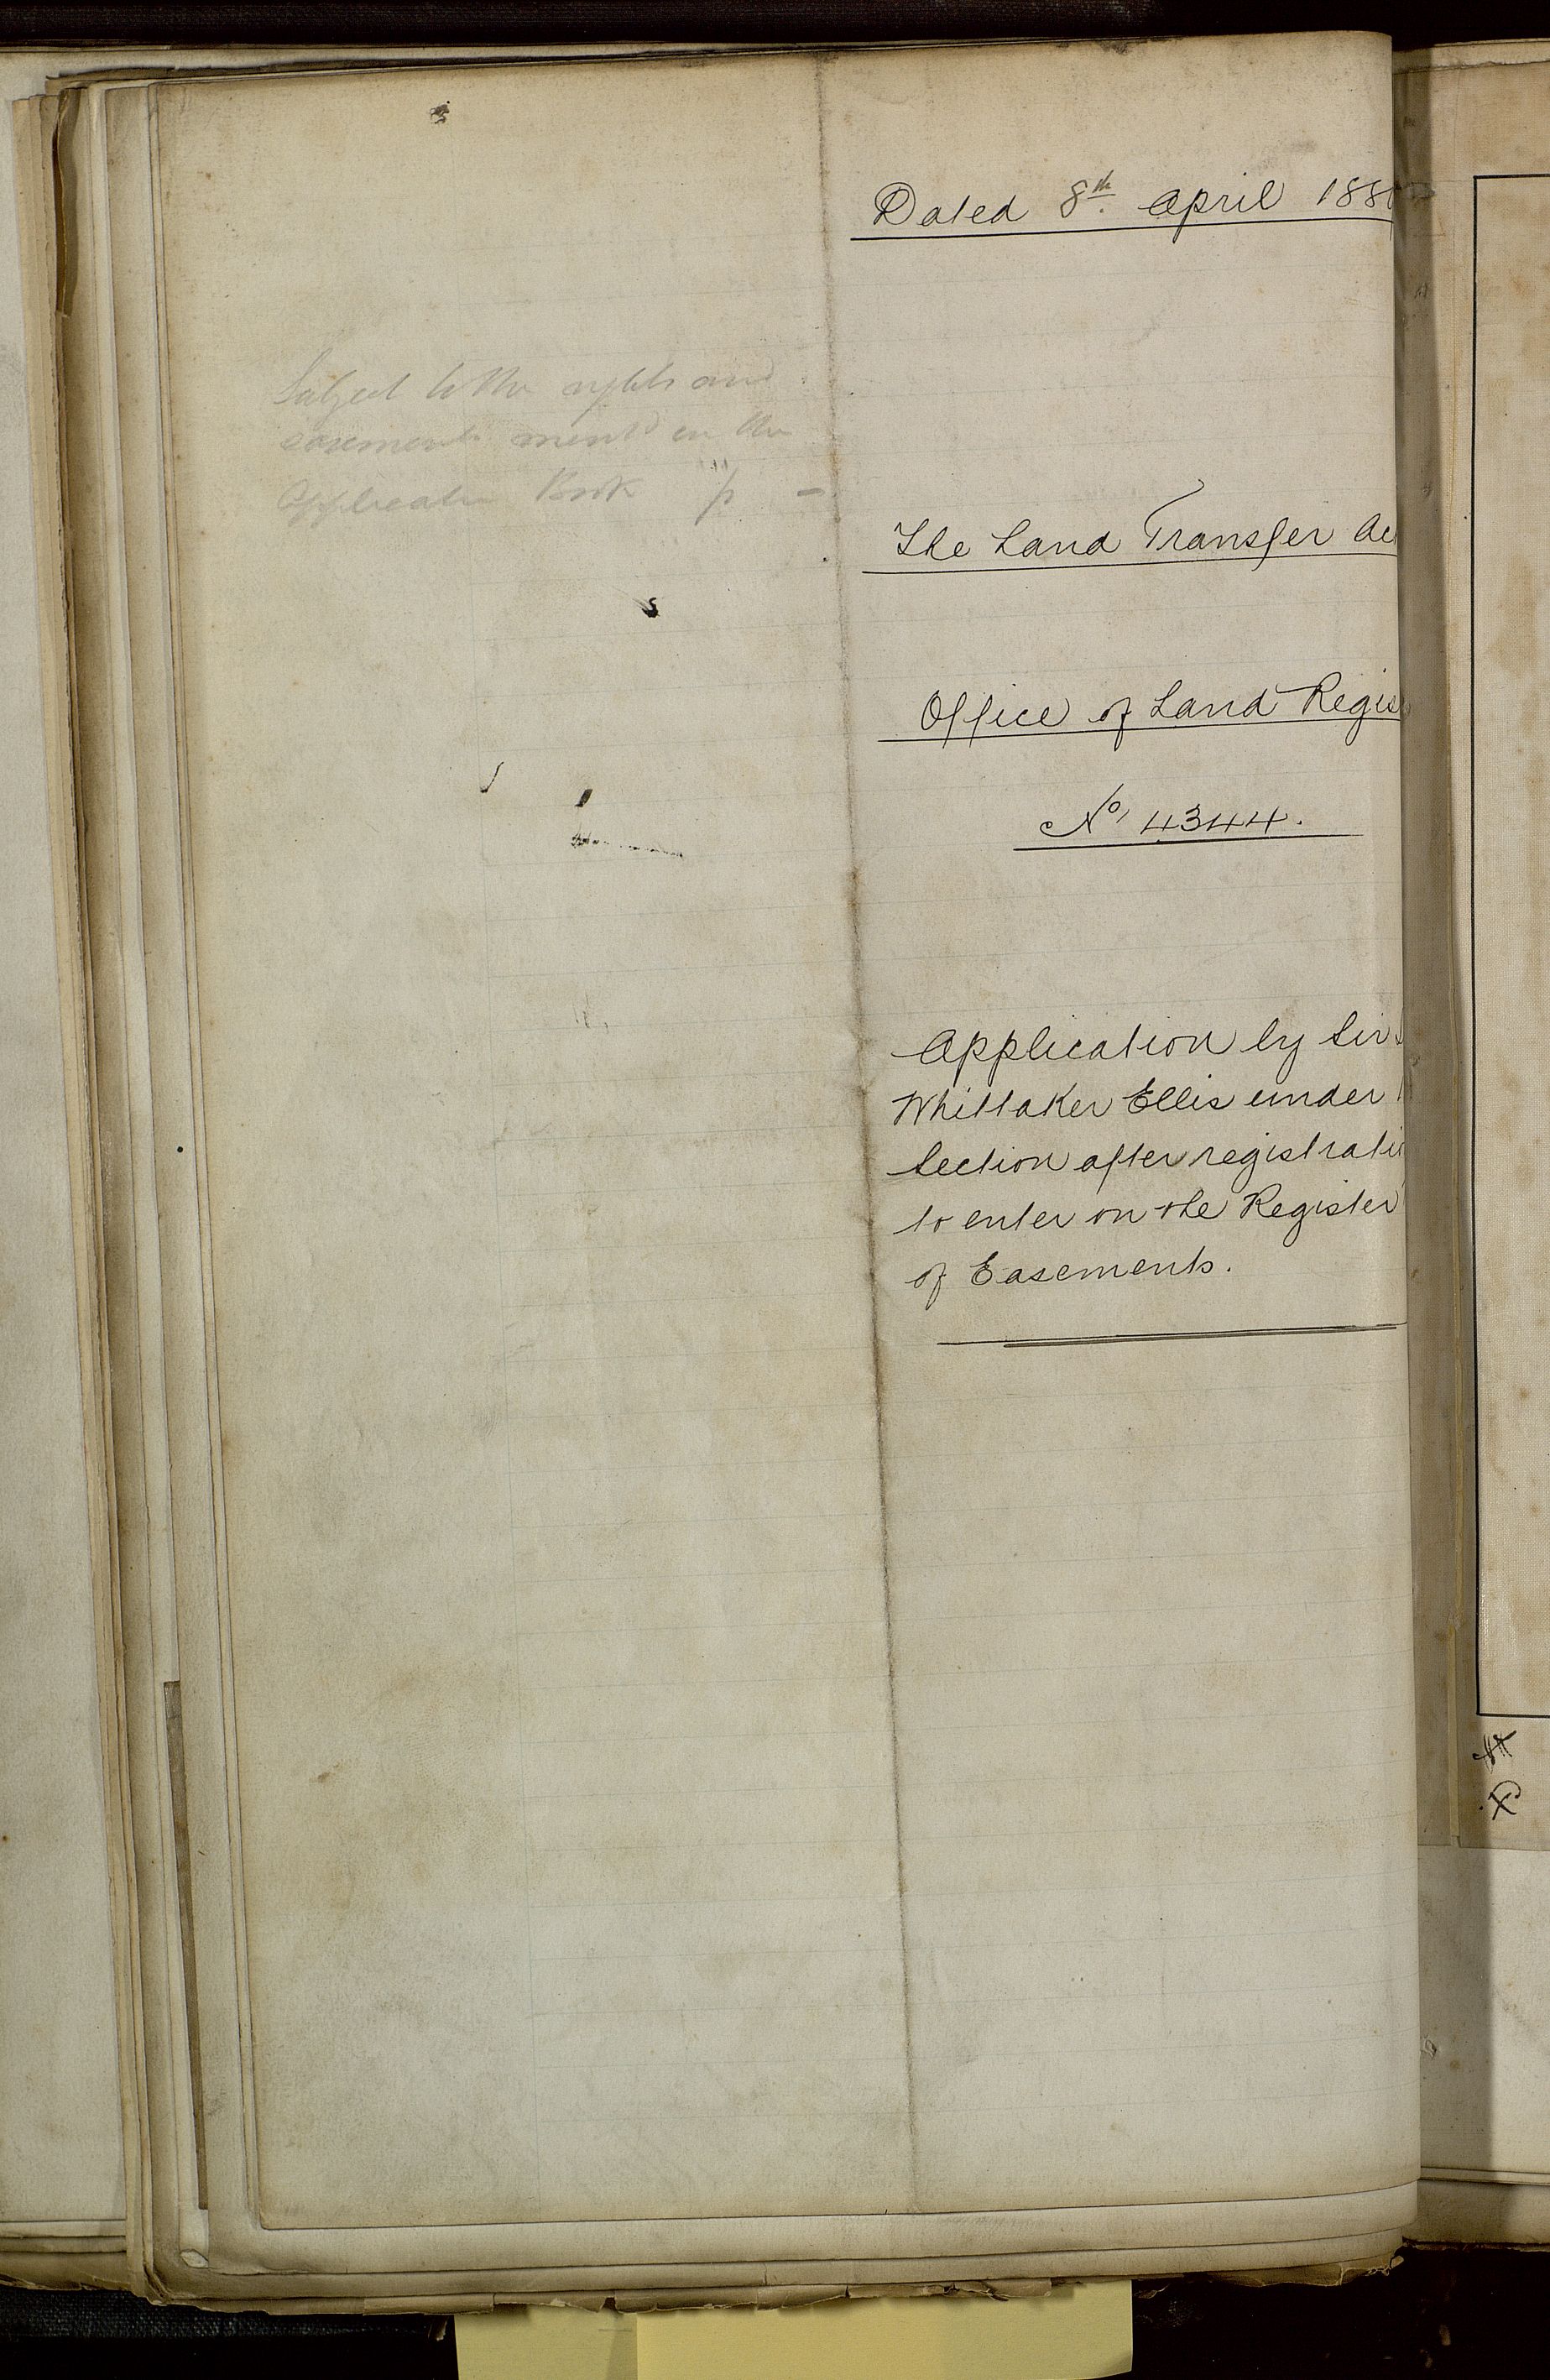 Subject to the rights and
easements ment^d in the
Application Book p –
Dated 8th April 188
The Land Transfer Ac
Office of Land Regis
No, 4344.
Application by Sir
Whittaker Ellis under
Section after registratio
to enter on the Register
of Easements.